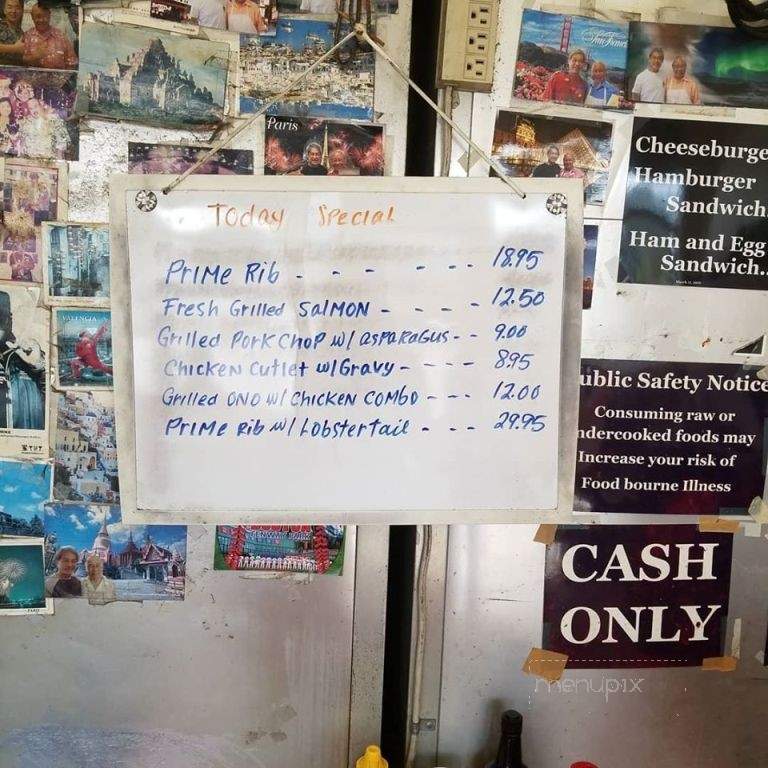 Today Special
Prime Rib - - - - - - 18.95
Fresh Grilled Salmon - - - - 12.50
Grilled Pork Chop w/ asparagus - - 9.00
Chicken Cutlet w/Gravy - - - - 8.95
Grilled ONO w/ Chicken Combo - - - 12.00
Prime Rib w/ Lobster tail - - - 29.95
Paris
VALENCIA
FENWAY PARK
Cheeseburge
Hamburger
Sandwich.
Ham and Egg
Sandwich..
ublic Safety Notice
Consuming raw or
ndercooked foods may
Increase your risk of
Food bourne Illness
CASH
ONLY
menupix